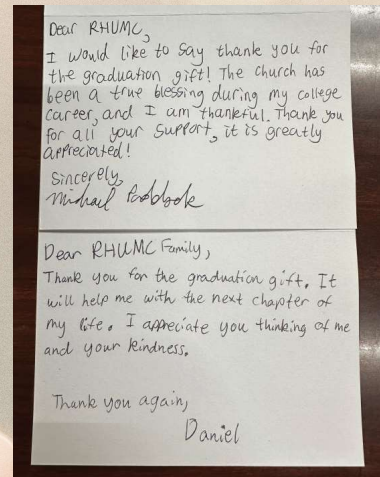 Dear RHUMC,
I would like to say thank you for
the graduation gift! The church has
been a true blessing during my college
career, and I am thankful. Thank you
for all your support, it is greatly
appreciated!
Sincerely,
Michael
Dear RHUMC Family,
Thank you for the graduation gift. It
will help me with the next chapter of
my life. I appreciate you thinking of me
and your kindness.
Thank you again,
Daniel